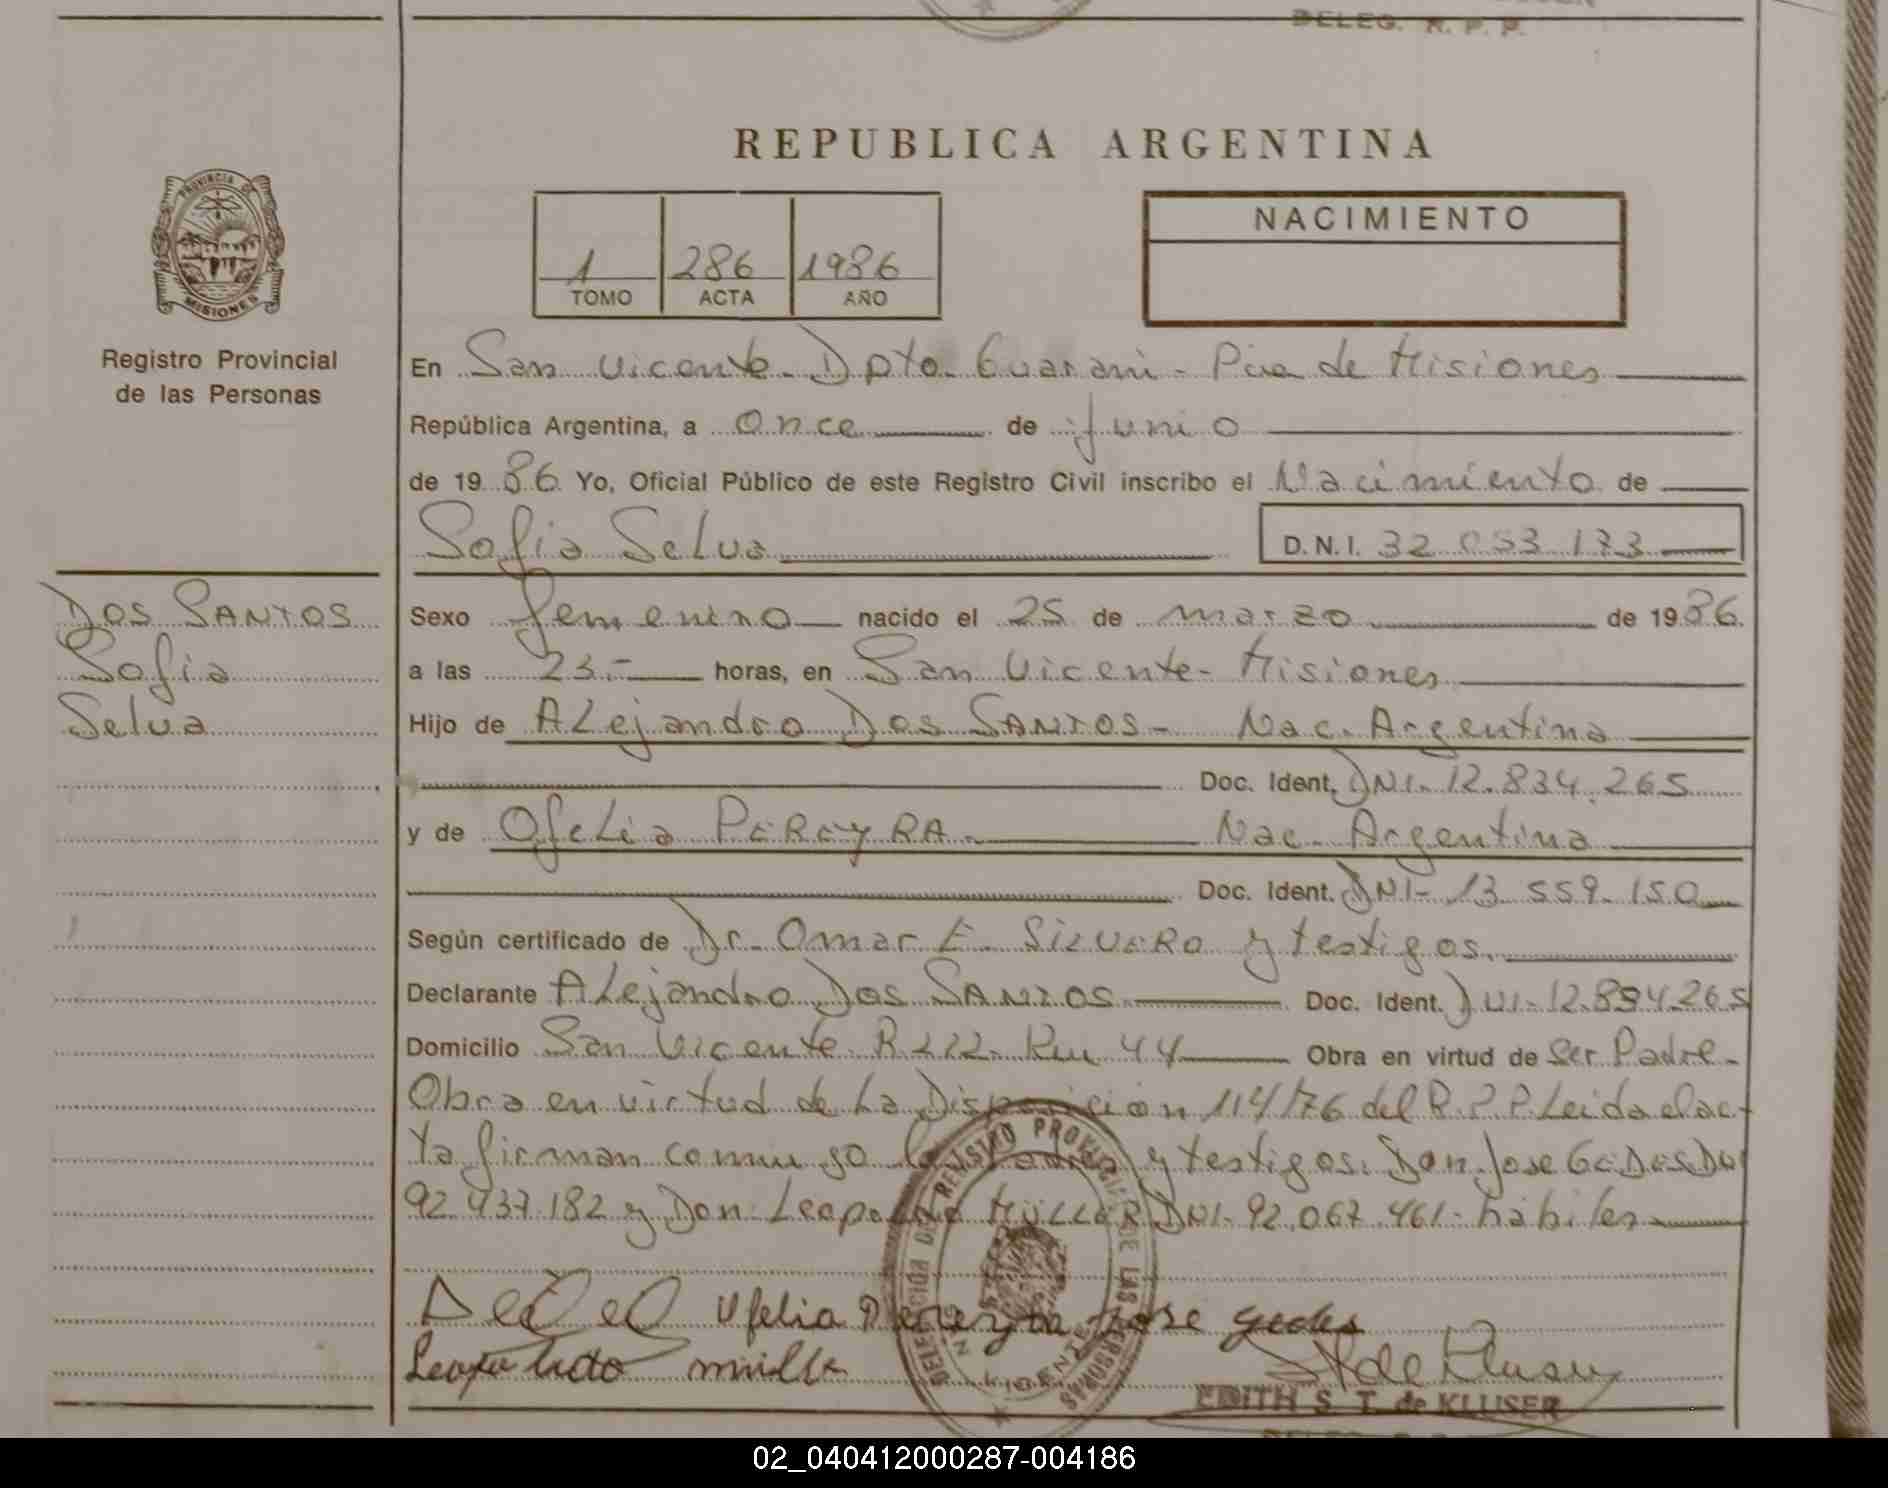 DELEG. R. P. P.
REPUBLICA ARGENTINA
PROVINCIA DE
MISIONES
Registro Provincial
de las Personas
1 286 1986
TOMO ACTA AÑO
NACIMIENTO
En San Vicente - Dpto. Guarani - Pcia de Misiones
República Argentina, a once de junio
de 1986 Yo, Oficial Público de este Registro Civil inscribo el Nacimiento de
Sofia Selva D.N.I. 32 053 173
DOS SANTOS
Sofia
Selva
Sexo femenino nacido el 25 de marzo de 1986.
a las 23.- horas, en San Vicente - Misiones
Hijo de ALejandro Dos SANTOS - Nac. Argentina
Doc. Ident. DNI- 12.834.265
y de OfeLia PEREYRA. Nac. Argentina
Doc. Ident. DNI- 13 559. 150
Según certificado de Dr. Omar E. SILVERO y testigos.
Declarante ALejandro Dos SANTOS Doc. Ident. DNI-12.834.265
Domicilio San Vicente R 212- Km 44 Obra en virtud de Ser Padre-
Obra en virtud de La Disposicion 114/76 del R.P.P. Leida el ac-
ta firman conmigo y testigos: Don Jose GEDES DNI
92 437.182 y Don Leopoldo MÜLLER DNI- 92.067.461- habiles
Ofelia Pereyra Jose
Leopoldo
DELEGACION DEL REGISTRO PROVINCIAL DE LAS PERSONAS
SAN VICENTE
EDITH S. T. de KLUSER
02_040412000287-004186